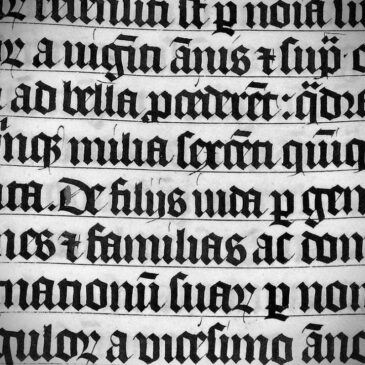 recensiti sūt ꝑ noīa
a uigīti ānis ⁊ sup̄
ad bella ꝓcederēt: q̄dra
inqꝫ milia sexcēti quīq
ta. De filijs iuda ꝑ gen
nes ⁊ familias ac dom
nationū suaꝝ ꝑ nom
guloꝝ a vicesimo āno